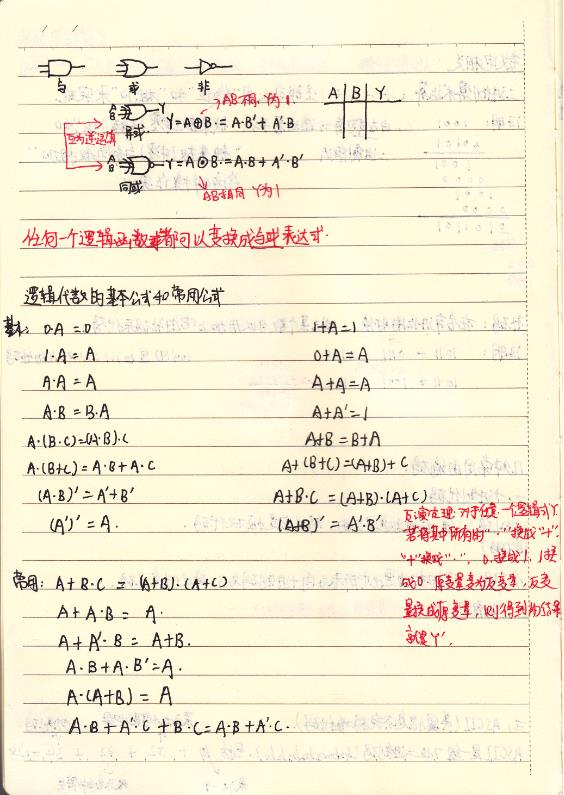 与 或 非
A B Y
AB相 Y为1.
A B Y Y=A⊕B.=A·B'+A'·B
异或
互为逆运算
A B Y=A⊙B.=A·B+A'·B'
同或
AB相同 Y为1
任何一个逻辑函数都可以变换成与或表达式.
逻辑代数的基本公式和常用公式
基本: 0·A=0 1+A=1
1·A=A 0+A=A
A·A=A A+A=A
A·B=B·A A+A'=1
A·(B·C)=(A·B)·C A+B=B+A
A·(B+C)=A·B+A·C A+(B+C)=(A+B)+C
(A·B)'=A'+B' A+B·C=(A+B)·(A+C)
(A')'=A. (A+B)'=A'·B'
反演定理:对于任意一个逻辑式Y
若将其中所有的"·"换成"+".
"+"换成"·", 0换成1, 1换
成0 原变量变为反变量,反变
量换成原变量,则得到的结果
就是Y'.
常用: A+B·C=(A+B)·(A+C)
A+A·B=A.
A+A'·B=A+B.
A·B+A·B'=A.
A·(A+B)=A
A·B+A'·C+B·C=A·B+A'·C.